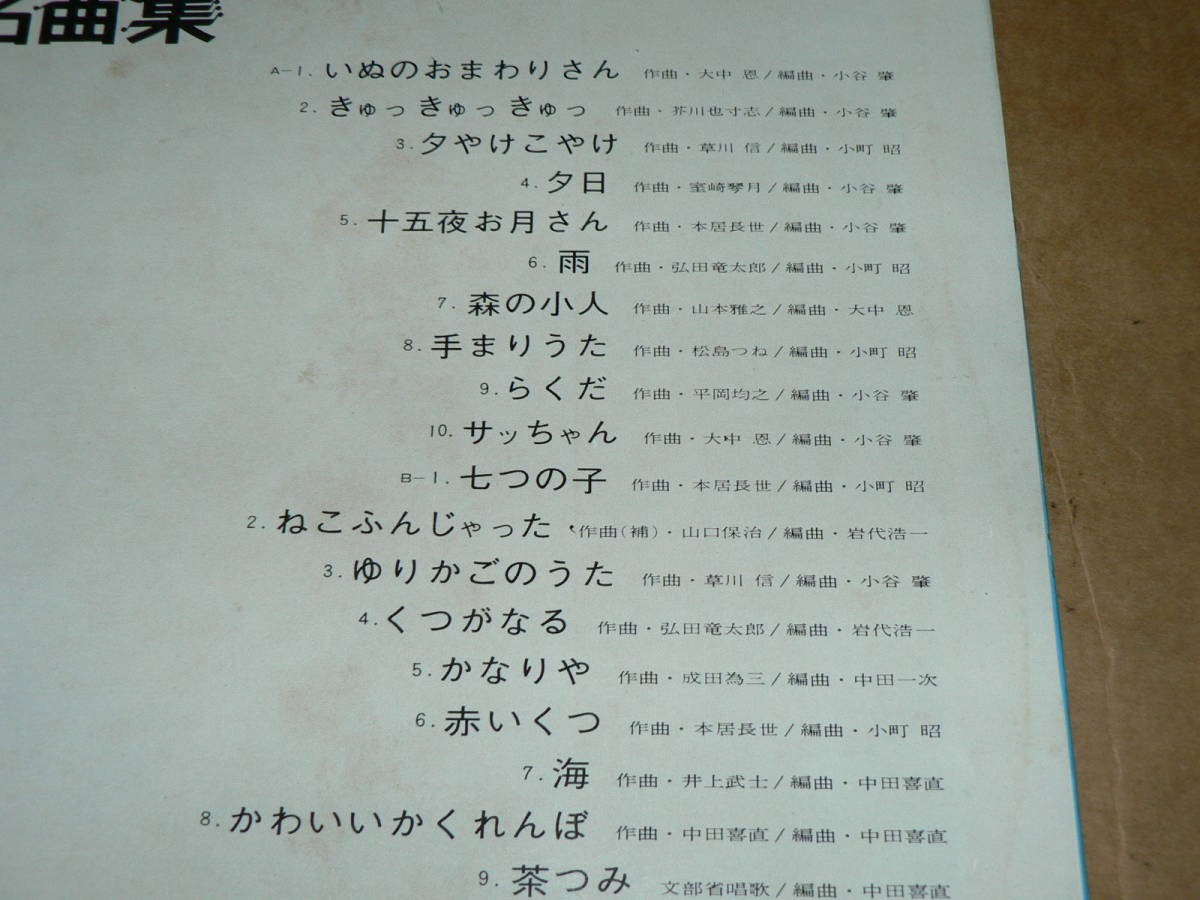 名曲集
A-1. いぬのおまわりさん 作曲・大中 恩/編曲・小谷 肇
2. きゅっ きゅっ きゅっ 作曲・芥川也寸志/編曲・小谷 肇
3. 夕やけこやけ 作曲・草川 信/編曲・小町 昭
4. 夕日 作曲・室崎琴月/編曲・小谷 肇
5. 十五夜お月さん 作曲・本居長世/編曲・小谷 肇
6. 雨 作曲・弘田竜太郎/編曲・小町 昭
7. 森の小人 作曲・山本雅之/編曲・大中 恩
8. 手まりうた 作曲・松島つね/編曲・小町 昭
9. らくだ 作曲・平岡均之/編曲・小谷 肇
10. サッちゃん 作曲・大中 恩/編曲・小谷 肇
B-1. 七つの子 作曲・本居長世/編曲・小町 昭
2. ねこふんじゃった 作曲(補)・山口保治/編曲・岩代浩一
3. ゆりかごのうた 作曲・草川 信/編曲・小谷 肇
4. くつがなる 作曲・弘田竜太郎/編曲・岩代浩一
5. かなりや 作曲・成田為三/編曲・中田一次
6. 赤いくつ 作曲・本居長世/編曲・小町 昭
7. 海 作曲・井上武士/編曲・中田喜直
8. かわいいかくれんぼ 作曲・中田喜直/編曲・中田喜直
9. 茶つみ 文部省唱歌/編曲・中田喜直